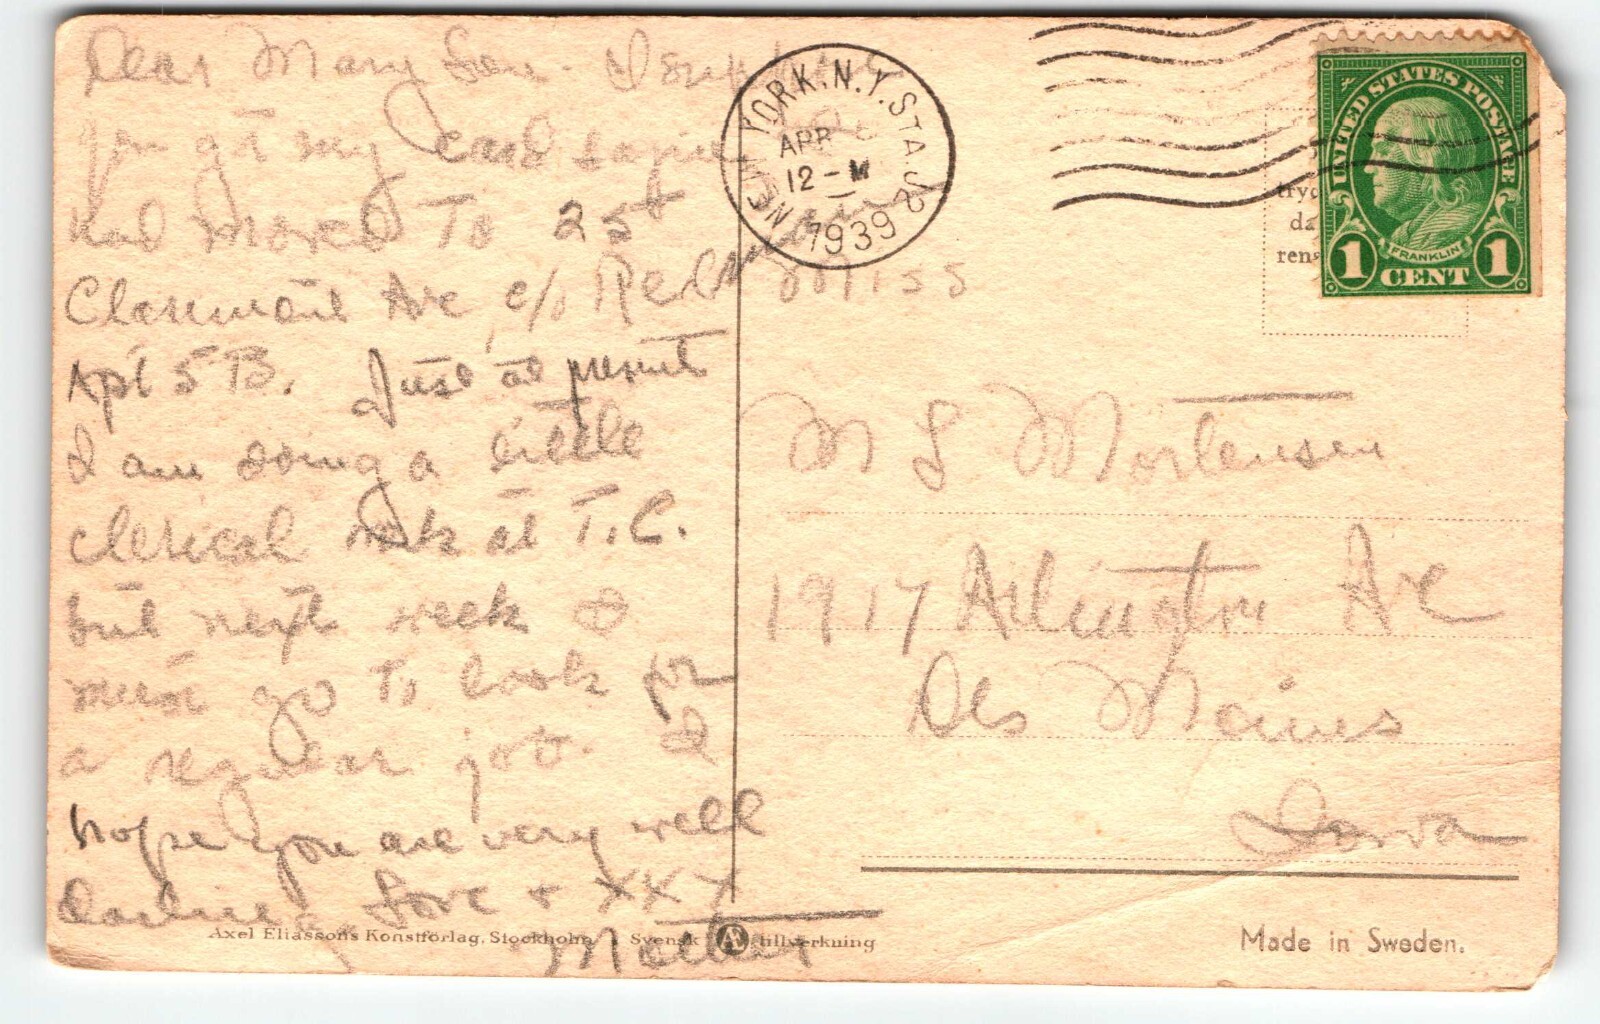 Dear Mary Lou - I
you got my card saying I
had moved to 25
Claremont Ave c/o
Apt 5 B. Just at present
I am doing a little
clerical work at T.C.
but next week I
must go to look for
a regular job. I
hope you are very well
darling. Love + XXX
Mother
NEW YORK, N.Y. STA. J2
APR
12 - M
1939
UNITED STATES POSTAGE
FRANKLIN
1 CENT 1
Miss
M L Mortensen
1917 Arlington Ave
Des Moines
Iowa
Axel Eliassons Konstförlag, Stockholm Svensk Æ tillverkning
Made in Sweden.